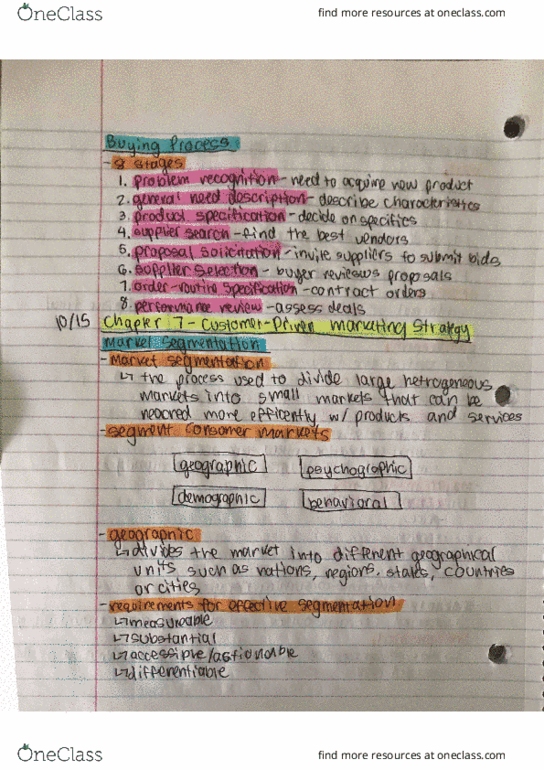 OneClass
find more resources at oneclass.com
Buying Process
- 8 stages
1. problem recognition - need to acquire new product
2. general need description - describe characteristics
3. product specification - decide on specifics
4. supplier search - find the best vendors
5. proposal solicitation - invite suppliers to submit bids
6. supplier selection - buyer reviews proposals
7. order-routine specification - contract orders
8. performance review - assess deals
10/15 Chapter 7 - Customer-Driven Marketing Strategy
Market Segmentation
- Market segmentation
↳ the process used to divide large hetrogeneous
markets into small markets that can be
reached more efficently w/ products and services
- segment consumer markets
geographic psychographic
demographic behavioral
- geographic
↳ divides the market into different geographical
units such as nations, regions, states, countries
or cities
- requirements for effective segmentation
↳ measureable
↳ substantial
↳ accessible/actionable
↳ differentiable
OneClass
find more resources at oneclass.com